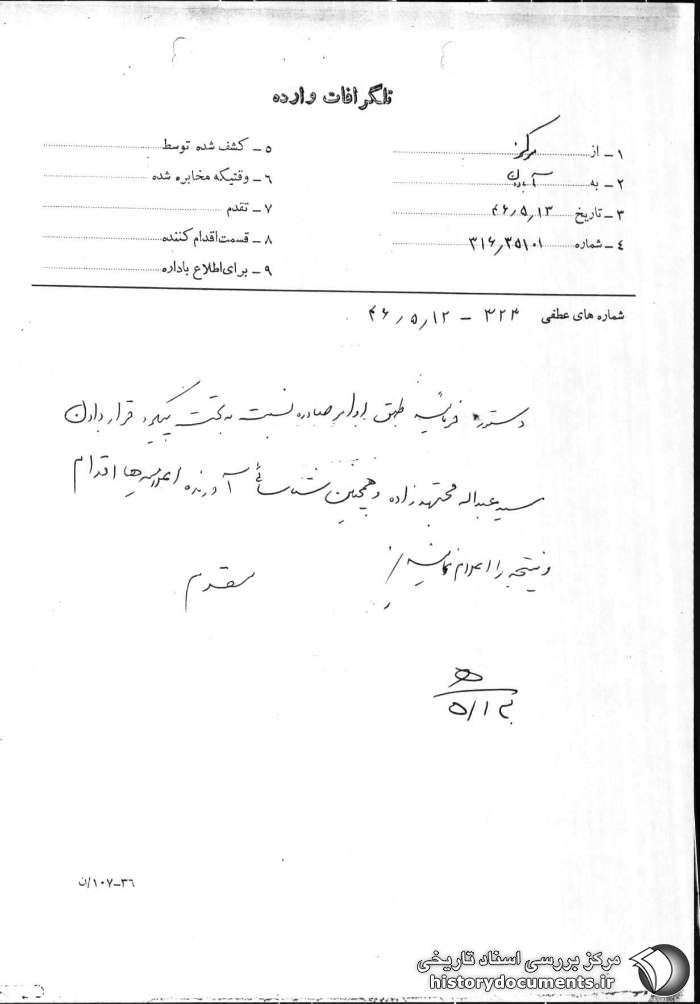 تلگرافات وارده
۱ـ از مرکز
۲ـ به آبادان
۳ـ تاریخ ۴۶٫۵٫۱۳
٤ـ شماره ۳۱۶٫۳۵۱۰۱
۵ـ کشف شده توسط
۶ـ وقتیکه مخابره شده
۷ـ تقدم
۸ـ قسمت اقدام کننده
۹ـ برای اطلاع باداره
شماره های عطفی ۳۲۴ – ۴۶٫۵٫۱۲
دستور فرمائید طبق اوامر صادره نسبت به تحت پیگرد قرار دادن
سید عبداله مجتهدزاده و همچنین شناسائی آورنده اعلامیه‌ها اقدام
و نتیجه را اعلام نمائید
مقدم
۵/۱۳
۳۶ـ۱۰۷/ن
مرکز بررسی اسناد تاریخی
historydocuments.ir